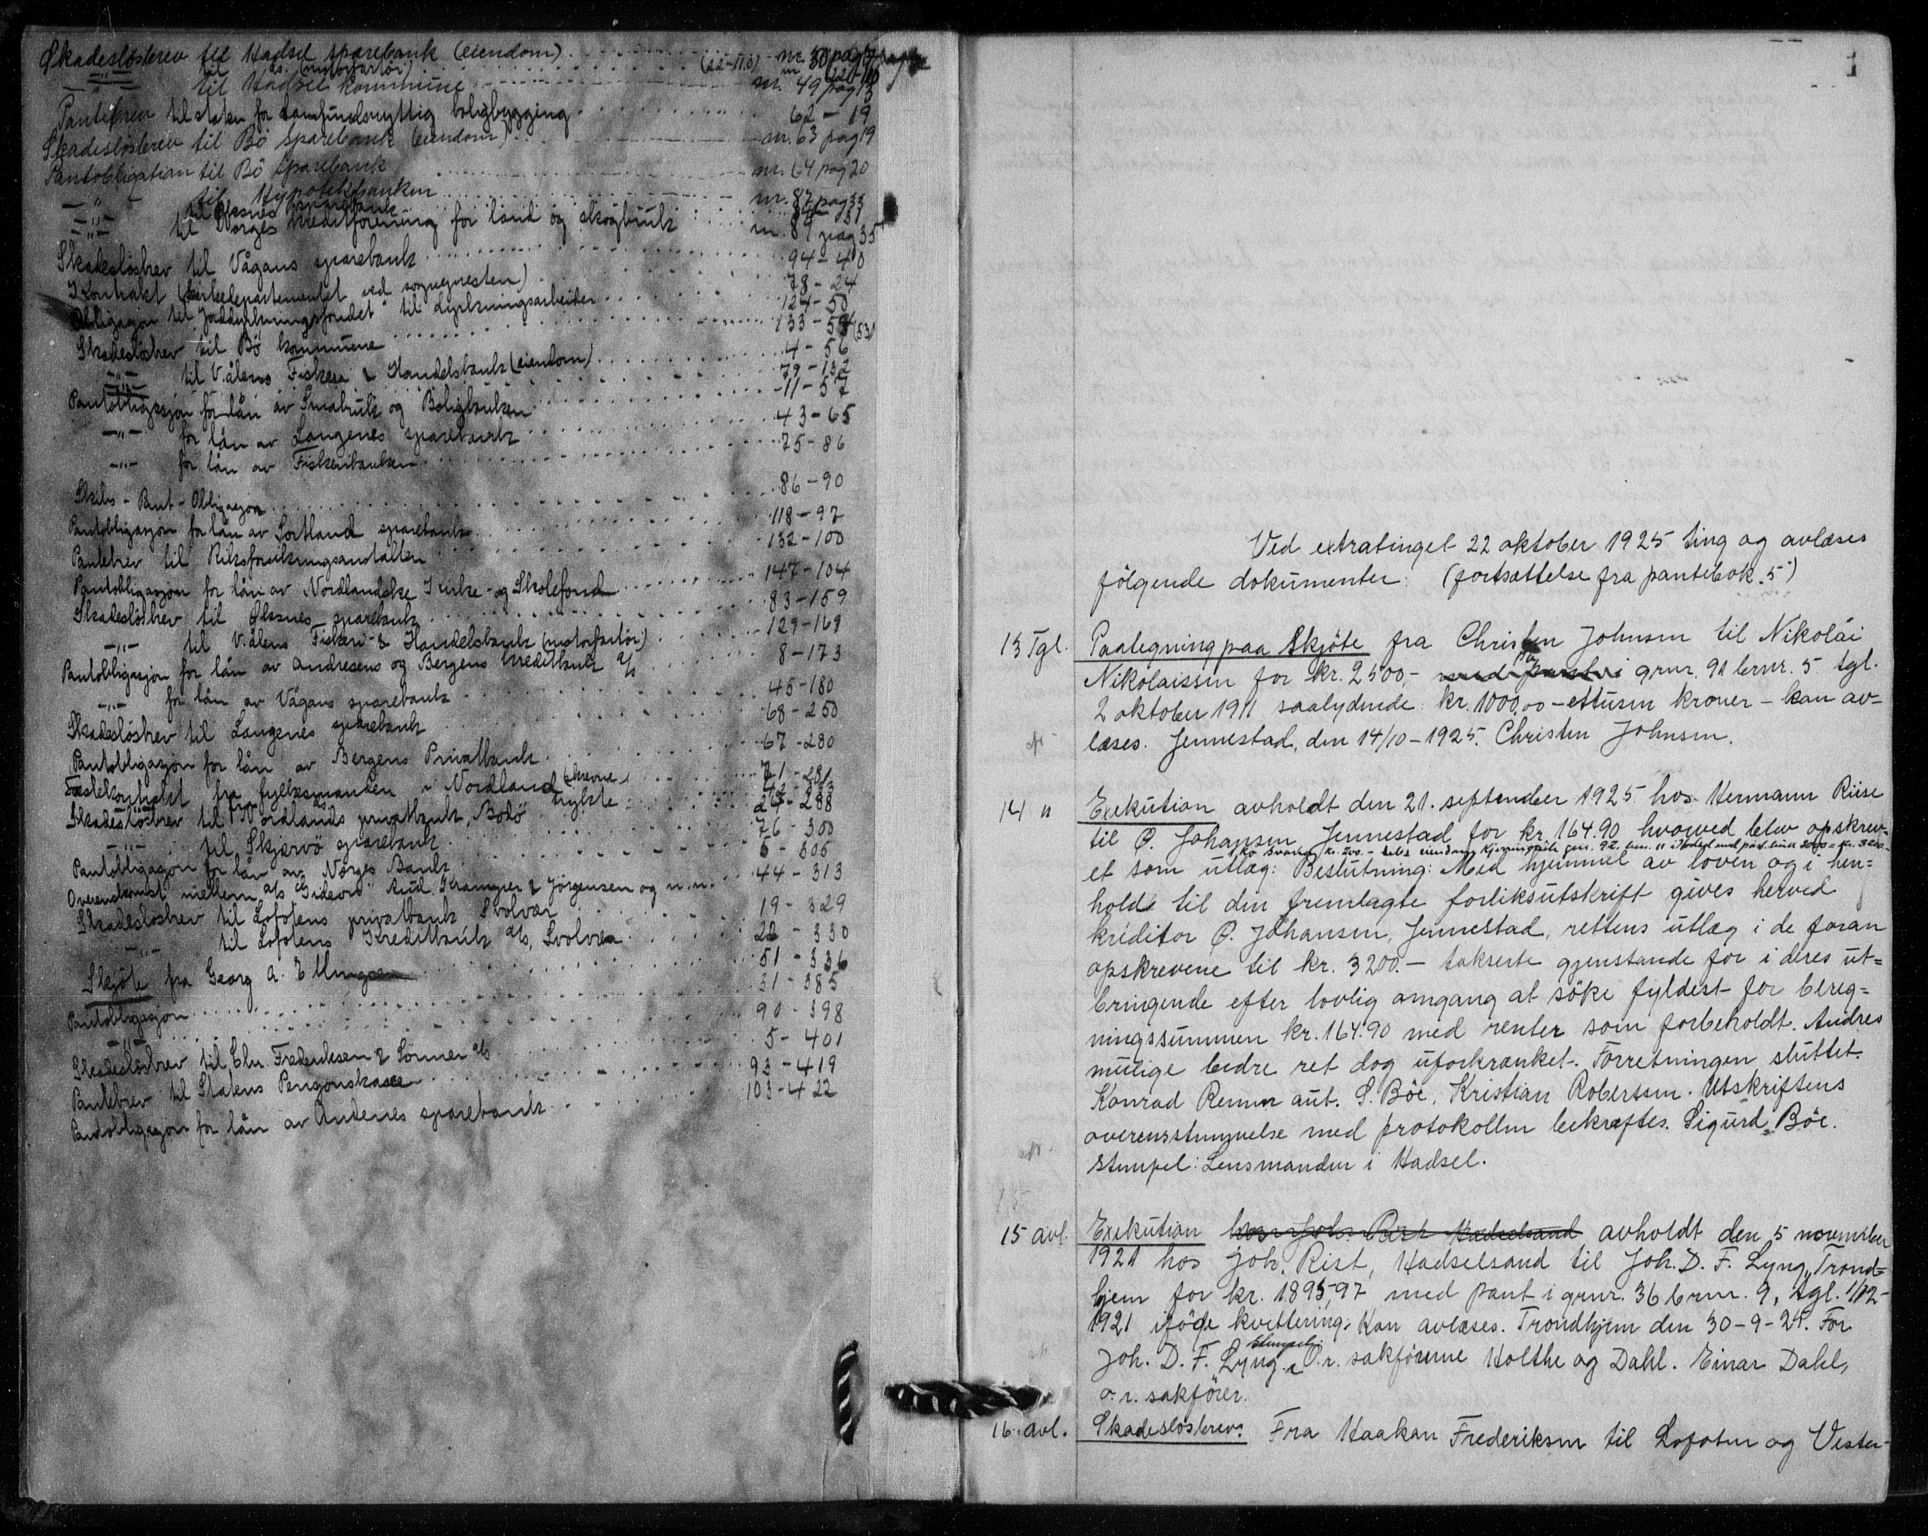 Skadesløsbrev til Hadsel sparebank (eiendom) nr. 50 pag
—"— do. (motorfartöi) (22-110)
—"— til Hadsel kommune nr. 49 pag 13
Pantebrev til staten for samfundsnyttig boligbygging 62 - 19
Skadesløsbrev til Bö Sparebank (eiendom) nr. 63 pag 19
Pantobligation til Bö Sparebank nr. 64 pag 20
—"— til Hypotekbanken nr. 87 pag 33
—"— til Öksnes sparebank
—"— til Norges Kreditforening for land og skogbruk nr. 89 pag 35
Skadeslösbrev til Vågans sparebank 94 - 40
Kontrakt (Kirkedepartementet ved sognepresten) 78 - 24
Obligasjon til Jorddyrkningsfondet til dyrkningsarbeider 124 - 50
Skadeslösbrev til Bö kommune 133 - 54 (53)
4 - 56
—"— til V.ålens Fiskeri & Handelsbank (eiendom) 79 - 132
Pantobligasjon for lån av Småbruk og Boligbanken 11 - 57
—"— for lån av Langenes sparebank 43 - 65
—"— for lån av Fiskeribanken 75 - 86
Skibs - Pant - Obligasjon 86 - 90
Pantobligasjon for lån av Sortland sparebank 118 - 97
Pantebrev til Riksforsikringsanstalten 132 - 100
Pantobligasjon for lån av Nordlandske Kirke- og Skolefond 147 - 104
Skadeslösbrev til Öksnes sparebank 83 - 159
—"— til V.ålens Fiskeri & Handelsbank (motorfartöi) 129 - 169
Pantobligasjon for lån av Andresens og Bergens Kreditbank A/S 8 - 173
—"— for lån av Vågans sparebank 45 - 180
Skadeslösbrev til Langenes sparebank 68 - 250
Pantobligasjon for lån av Bergens Privatbank 67 - 280
Festekontrakt fra fylkesmannen i Nordland 71 - 281
Skadeslösbrev til Nordlands privatbank, Bodö 27 - 288
—"— til Skjervö sparebank 76 - 300
Pantobligasjon for lån av Norges Bank 5 - 305
Overenskomst mellem A/S "Gideon" Aud. Gramper & Jörgensen og n.n. 44 - 313
Skadeslösbrev til Lofotens privatbank Svolvær 19 - 329
—"— til Lofotens Kreditbank A/S, Svolvær 22 - 330
Skjöte fra Georg A. Ellingsen 51 - 336
Pantobligasjon 31 - 385
—"— 90 - 398
Skadeslösbrev til Chr. Frederiksen & Sönner A/S 5 - 401
Pantebrev til Statens Pensjonskasse 93 - 419
Pantobligasjon for lån av Andenes sparebank 103 - 422
1
Ved extratinget 22 oktober 1925 ting og avlæses
fölgende dokumenter: (fortsættelse fra pantebok 5)
13 Tgl. Paategning paa Skjöte fra Christen Johnsen til Nikolai
Nikolaissen for kr. 2500,- paa grnr. 91 brnr. 5 tgl.
2 oktober 1911 saalydende kr. 1000,00 - ettusen kroner - kan av=
læses. Jennestad, den 14/10 - 1925. Christen Johnsen.
14 " Exekution avholdt den 21. september 1925 hos Hermann Riise
til O. Johansen Jennestad for kr. 164.90 hvorved blev opskrev=
et som utlæg: Beslutning: Med hjemmel av loven og i hen=
hold til den fremlagte forliksutskrift gives herved
kreditor O. Johansen, Jennestad, rettens utlæg i de foran
opskrevene til kr. 3200.— takserte gjenstande for i deres ut=
bringende efter lovlig omgang at söke fyldest for bereg=
ningssummen kr. 164.90 med renter som forbeholdt. Andres
mulige bedre ret dog uforkrænket. Forretningen sluttet.
Konrad Remen aut. S. Böe, Kristian Robertsen. Utskriftens
overensstemmelse med protokollen bekræftes. Sigurd Böe.
Stempel: Lensmanden i Hadsel.
15 avl. Exekution hos Joh. Rist Hadselsand avholdt den 5 november
1921 hos Joh. Rist, Hadselsand til Joh. D. F. Lyng, Trond=
hjem for kr. 1895,97 med pant i grnr. 36 brnr. 9, tgl. 1/12-
1921 iföge kvittering: Kan avlæses. Trondhjem den 30-9-25. For
Joh. D. F. Lyng, Stempel: O.r. sakförerne Holthe og Dahl. Einar Dahl,
o.r. sakförer.
16 avl. Skadeslösbrev: Fra Haakon Frederiksen til Lofoten og Vester-